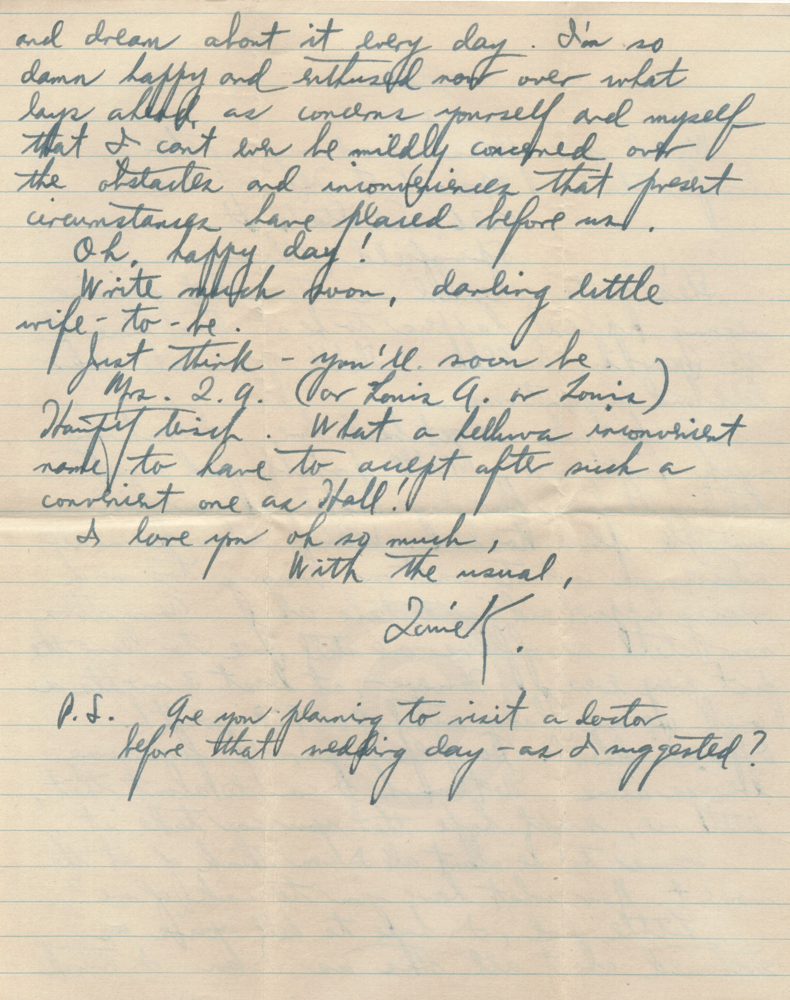 and dream about it every day. I'm so
damn happy and enthused now over what
lays ahead, as concerns yourself and myself
that I can't even be mildly concerned over
the obstacles and inconveniences that present
circumstances have placed before us.
Oh, happy day!
Write much soon, darling little
wife-to-be.
Just think - you'll soon be
Mrs. L. A. (or Louis A. or Louis)
What a helluva inconvenient
name to have to accept after such a
convenient one as Hall!
I love you oh so much,
With the usual,
P.S. Are you planning to visit a doctor
before that wedding day - as I suggested?